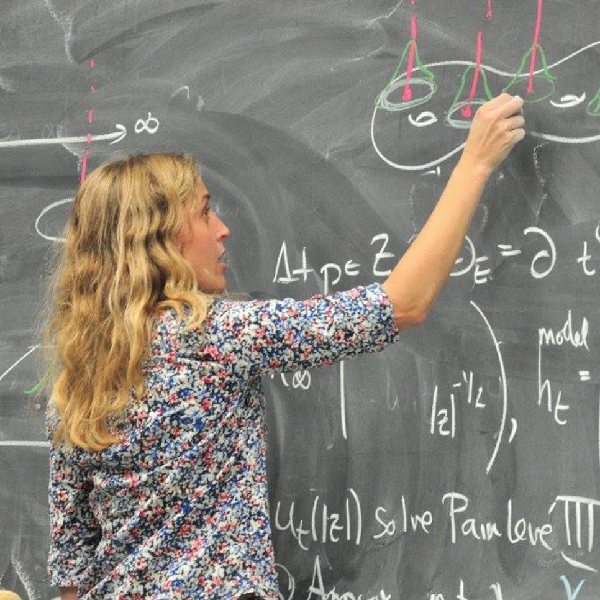 ∞
Δ + p ∈ Z
∂_E = ∂
t
∞
|z|^{-1/2}
),
model
h_t =
u_t(|z|) solve Painlevé III